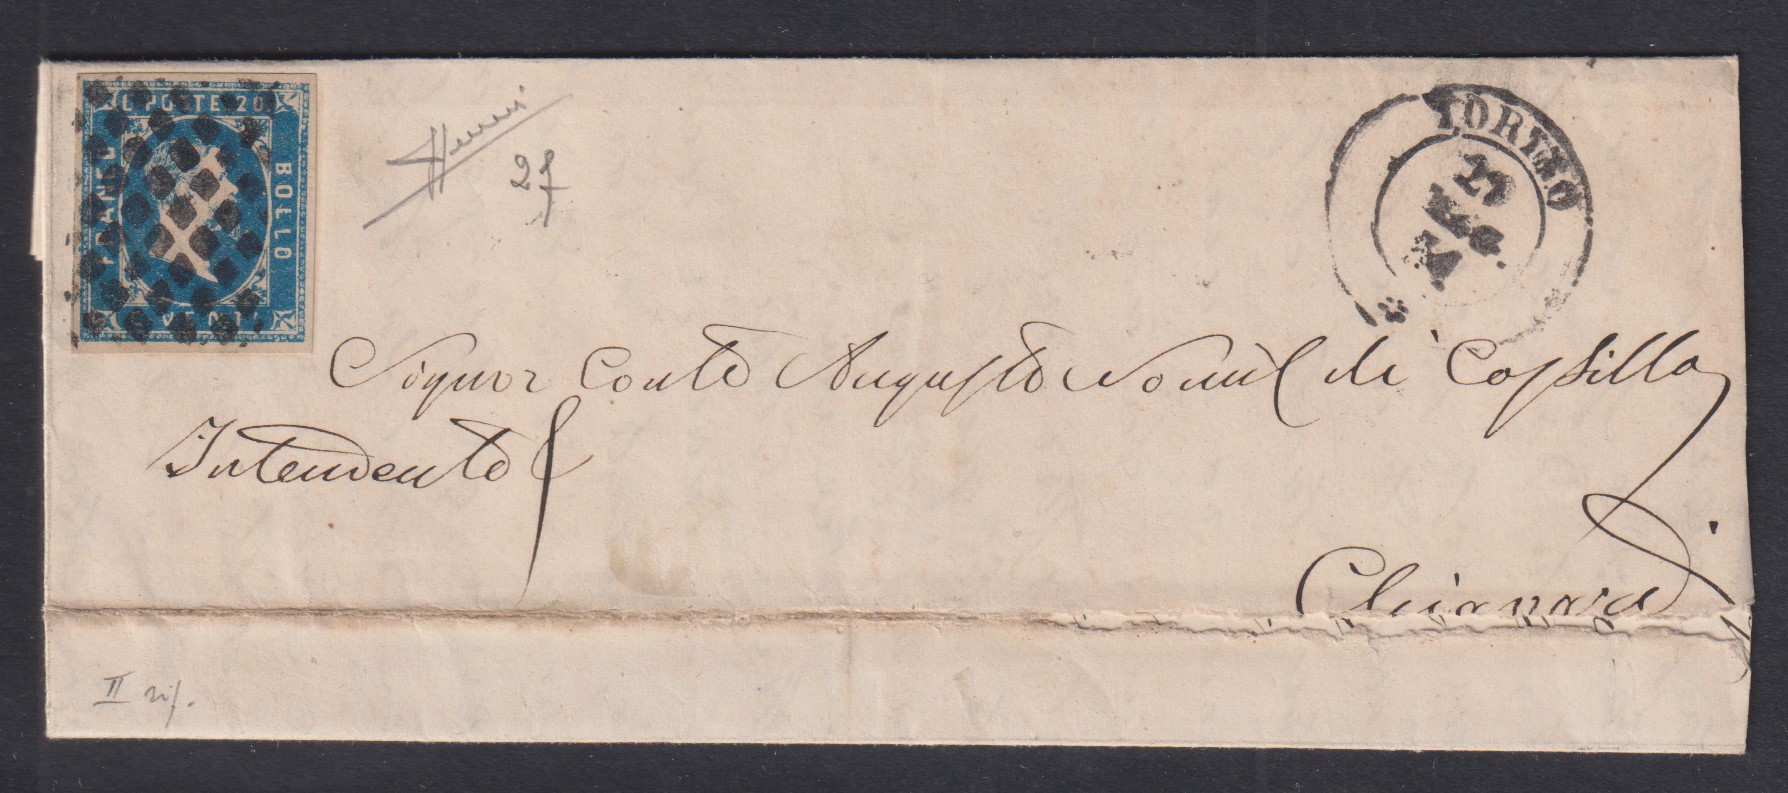 C. POSTE 20
FRANCO
BOLLO
VENTI
27
TORINO
25
MAG
Signor Conte Augusto Nomil di Cossilla
Intendente
Chiavari
II rif.